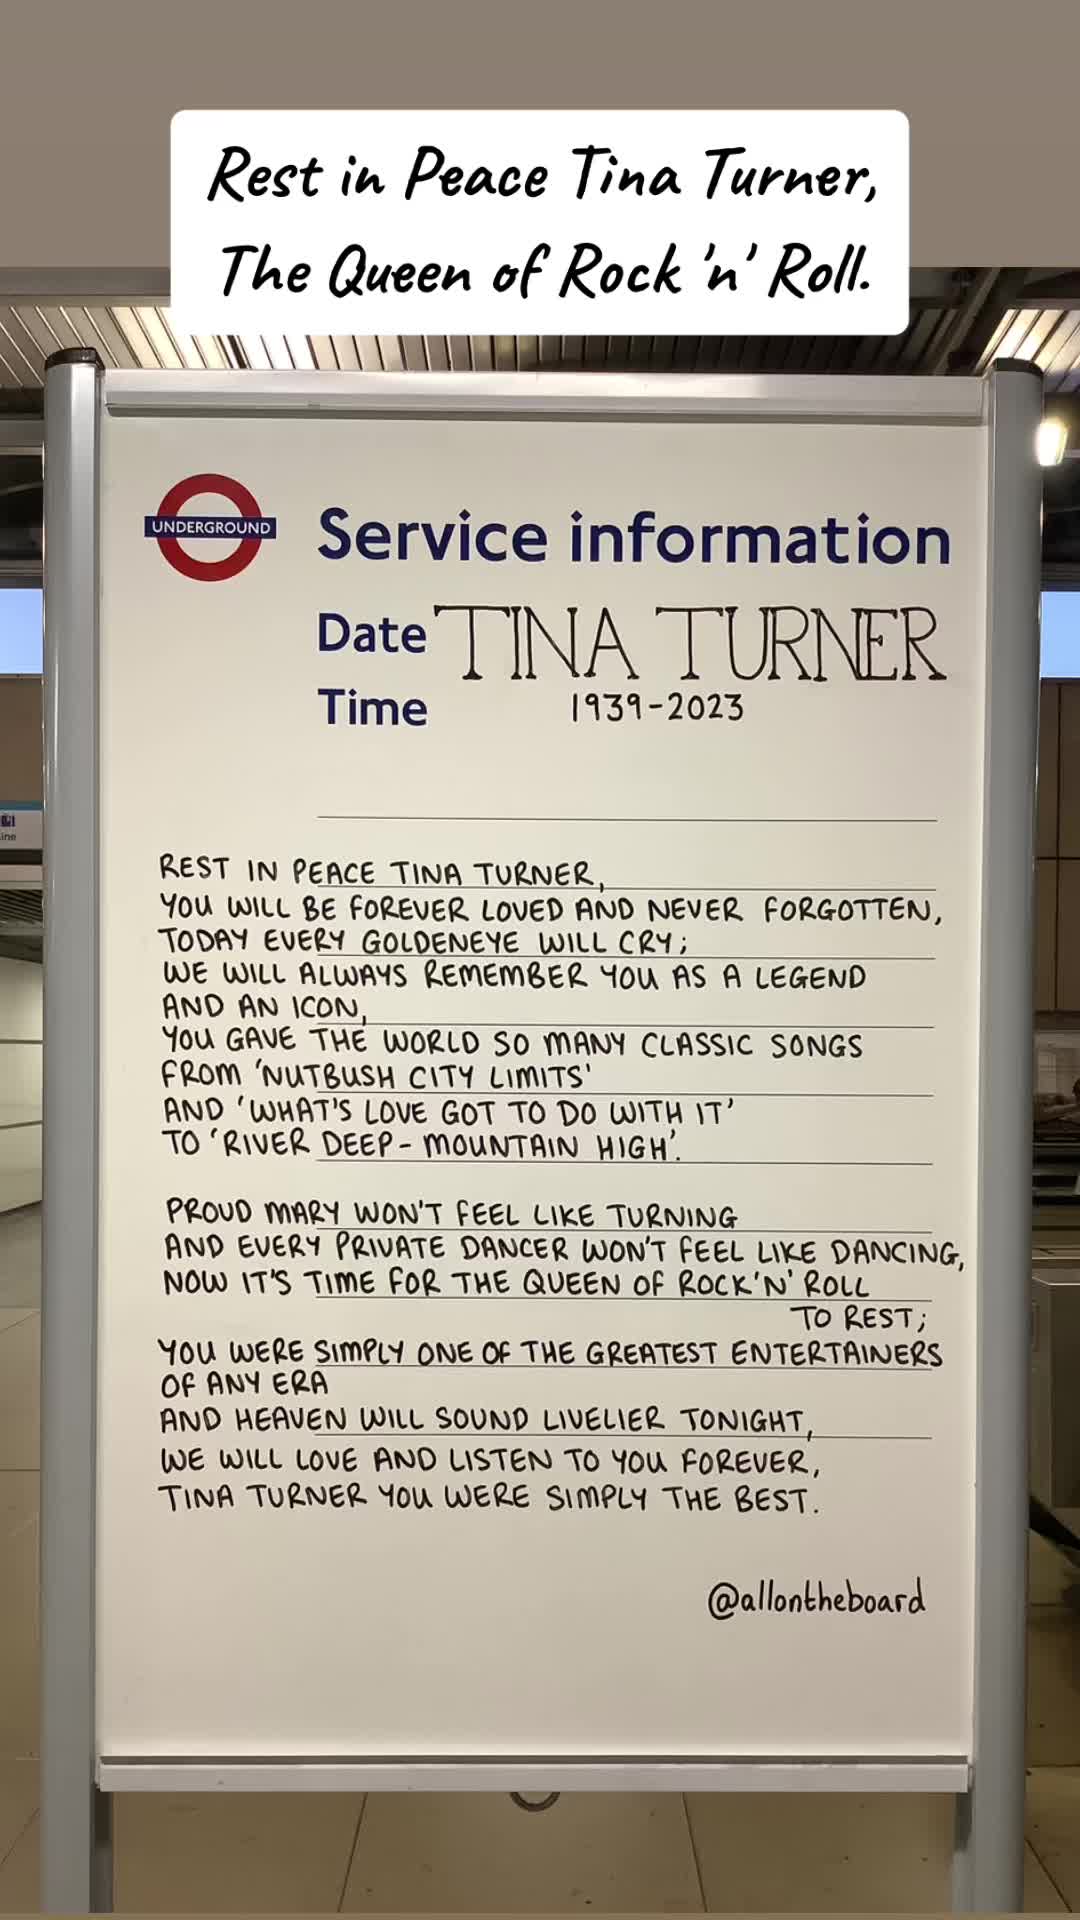 Rest in Peace Tina Turner,
The Queen of Rock 'n' Roll.
UNDERGROUND
Service information
Date TINA TURNER
Time 1939-2023
REST IN PEACE TINA TURNER,
YOU WILL BE FOREVER LOVED AND NEVER FORGOTTEN,
TODAY EVERY GOLDENEYE WILL CRY;
WE WILL ALWAYS REMEMBER YOU AS A LEGEND
AND AN ICON,
YOU GAVE THE WORLD SO MANY CLASSIC SONGS
FROM 'NUTBUSH CITY LIMITS'
AND 'WHAT'S LOVE GOT TO DO WITH IT'
TO 'RIVER DEEP - MOUNTAIN HIGH'.
PROUD MARY WON'T FEEL LIKE TURNING
AND EVERY PRIVATE DANCER WON'T FEEL LIKE DANCING,
NOW IT'S TIME FOR THE QUEEN OF ROCK 'N' ROLL
TO REST;
YOU WERE SIMPLY ONE OF THE GREATEST ENTERTAINERS
OF ANY ERA
AND HEAVEN WILL SOUND LIVELIER TONIGHT,
WE WILL LOVE AND LISTEN TO YOU FOREVER,
TINA TURNER YOU WERE SIMPLY THE BEST.
@allontheboard